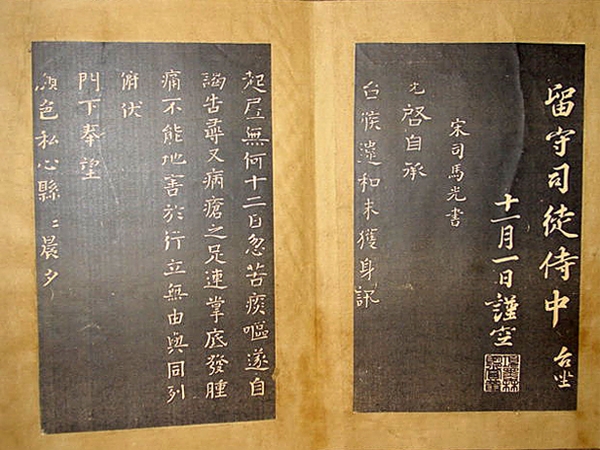 留守司徒侍中 台坐
十一月一日謹空
宋司馬光書
光啓自承
台候違和未獲身訊
起居無何十二日忽苦痰嘔遂自
謁告尋又病瘡之足連掌底發腫
痛不能地害於行立無由與同列
俯伏
門下奉望
顏色私心縣〻晨夕